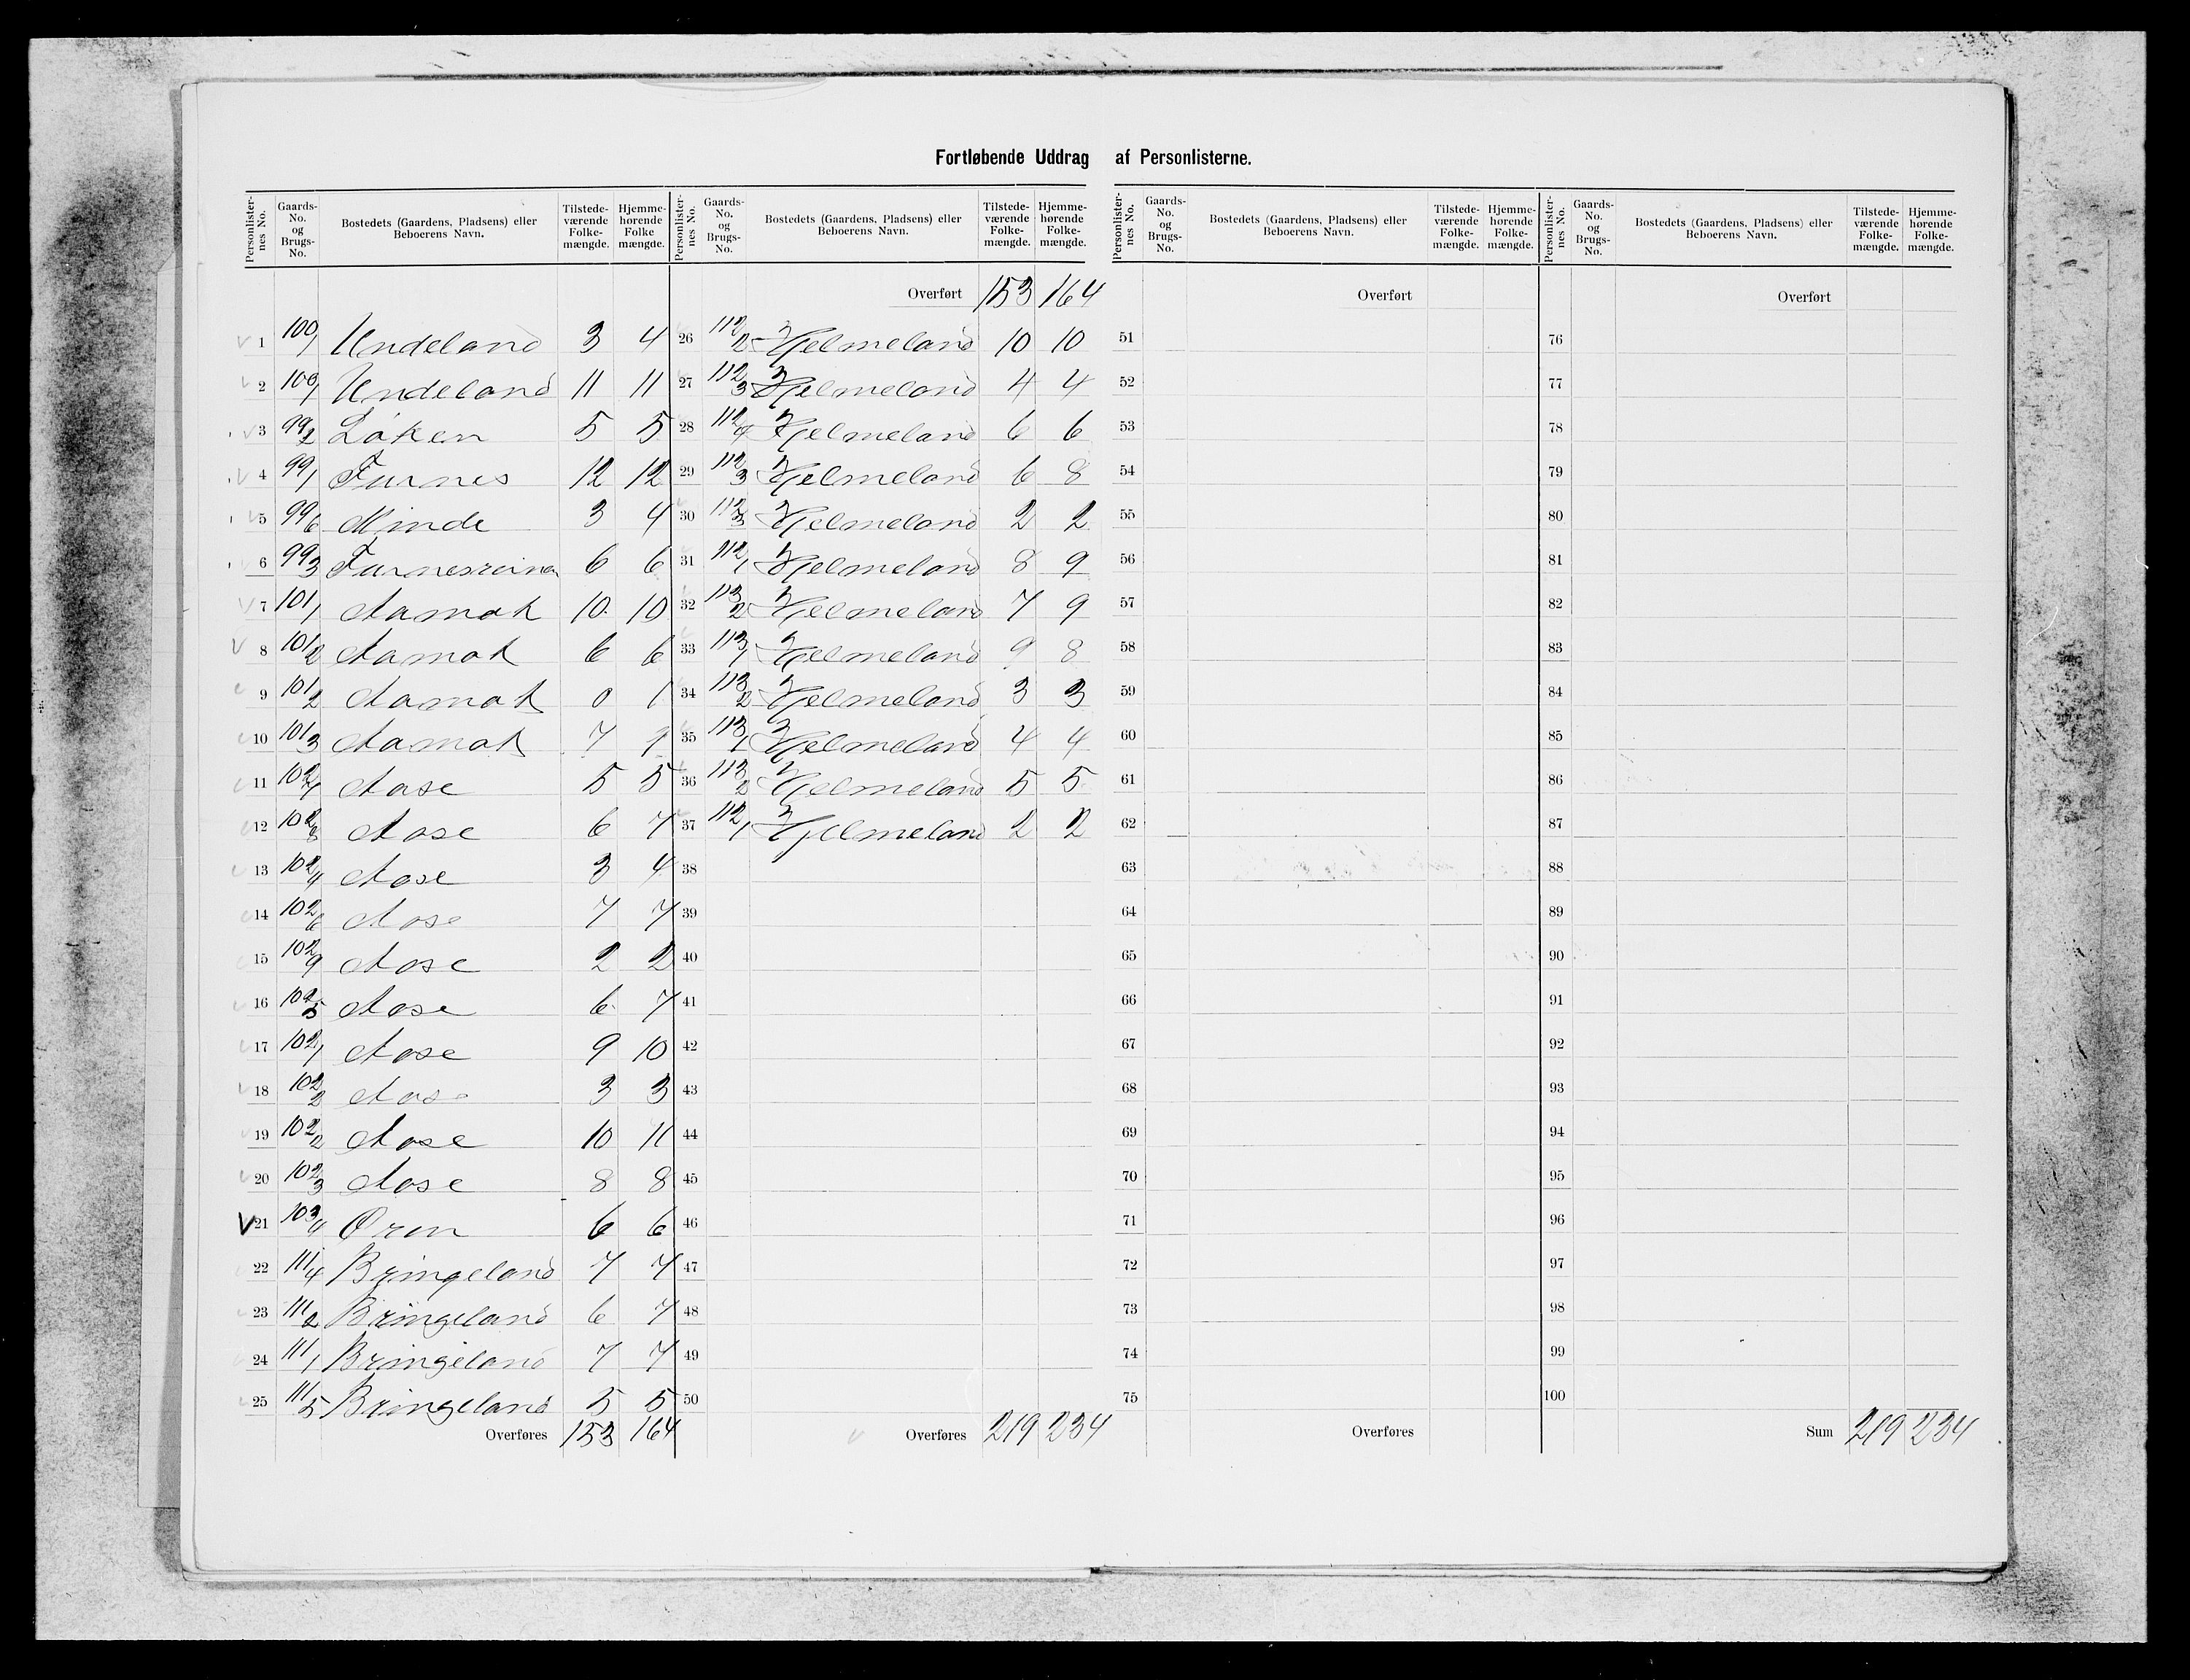 Fortløbende Uddrag af Personlisterne.
Personlister-nes No. Gaards-No. og Brugs-No. Bostedets (Gaardens, Pladsens) eller Beboerens Navn. Tilstede-værende Folke-mængde. Hjemme-hørende Folke mængde.
1 100/1 Undeland 3 4
2 100/1 Undeland 11 11
3 99/2 Løken 5 5
4 99/1 Furnes 12 12
5 99/6 Minde 3 4
6 99/3 6 6
7 101/1 Aamot 10 10
8 101/2 Aamot 6 6
9 101/2 Aamot 0 1
10 101/3 Aamot 7
11 102/7 Aase 5 5
12 102/8 Aase 6 7
13 102/4 Aase 3 4
14 102/6 Aase 7 7
15 102/9 Aase 2 2
16 102/5 Aase 6 7
17 102/1 Aase 9 10
18 102/2 Aase 3 3
19 102/2 Aase 10 11
20 102/3 Aase 8 8
21 103/4 Øren 6 6
22 111/4 Bringeland 7 7
23 111/2 Bringeland 6 7
24 111/1 Bringeland 7 7
25 111/5 Bringeland 5 5
Overføres 153 164
Personlister-nes No. Gaards-No. og Brugs-No. Bostedets (Gaardens, Pladsens) eller Beboerens Navn. Tilstede-værende Folke-mængde. Hjemme-hørende Folke-mængde.
Overført 153 164
26 112/2 Hjelmeland 10 10
27 112/3 Hjelmeland 4 4
28 112/4 Hjelmeland 6 6
29 112/3 Hjelmeland 6 8
30 112/3 Hjelmeland 2 2
31 112/1 Hjelmeland 8 9
32 113/2 Hjelmeland 7 9
33 113/1 Hjelmeland 9 8
34 113/2 Hjelmeland 3 3
35 113/1 Hjelmeland 4 4
36 113/2 Hjelmeland 5 5
37 112/1 Hjelmeland 2 2
38
39
40
41
42
43
44
45
46
47
48
49
50
Overføres 219 234
Personlister-nes No. Gaards-No. og Brugs-No. Bostedets (Gaardens, Pladsens) eller Beboerens Navn. Tilstede-værende Folke-mængde. Hjemme-hørende Folke-mængde.
Overført
51
52
53
54
55
56
57
58
59
60
61
62
63
64
65
66
67
68
69
70
71
72
73
74
75
Overføres
Personlister-nes No. Gaards-No. og Brugs-No. Bostedets (Gaardens, Pladsens) eller Beboerens Navn. Tilstede-værende Folke-mængde. Hjemme-hørende Folke-mængde.
Overført
76
77
78
79
80
81
82
83
84
85
86
87
88
89
90
91
92
93
94
95
96
97
98
99
100
Sum 219 234